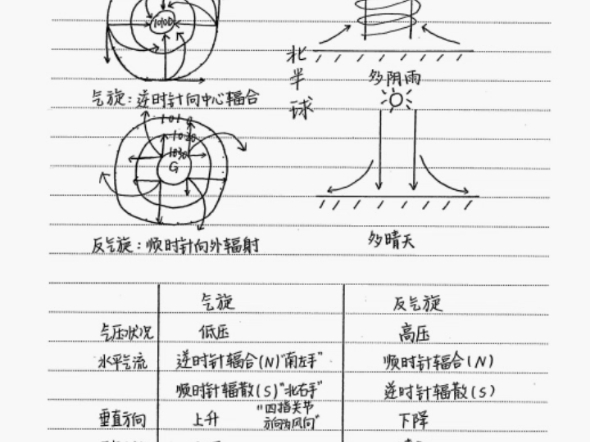 1000
北
半
球
多阴雨
气旋：逆时针向中心辐合
1010
1020
1030
G
反气旋：顺时针向外辐射
多晴天
气旋 反气旋
气压状况 低压 高压
水平气流 逆时针辐合(N)"南左手" 顺时针辐合(N)
顺时针辐散(S)"北右手" 逆时针辐散(S)
"四指关节
垂直方向 上升 方向为风向" 下降